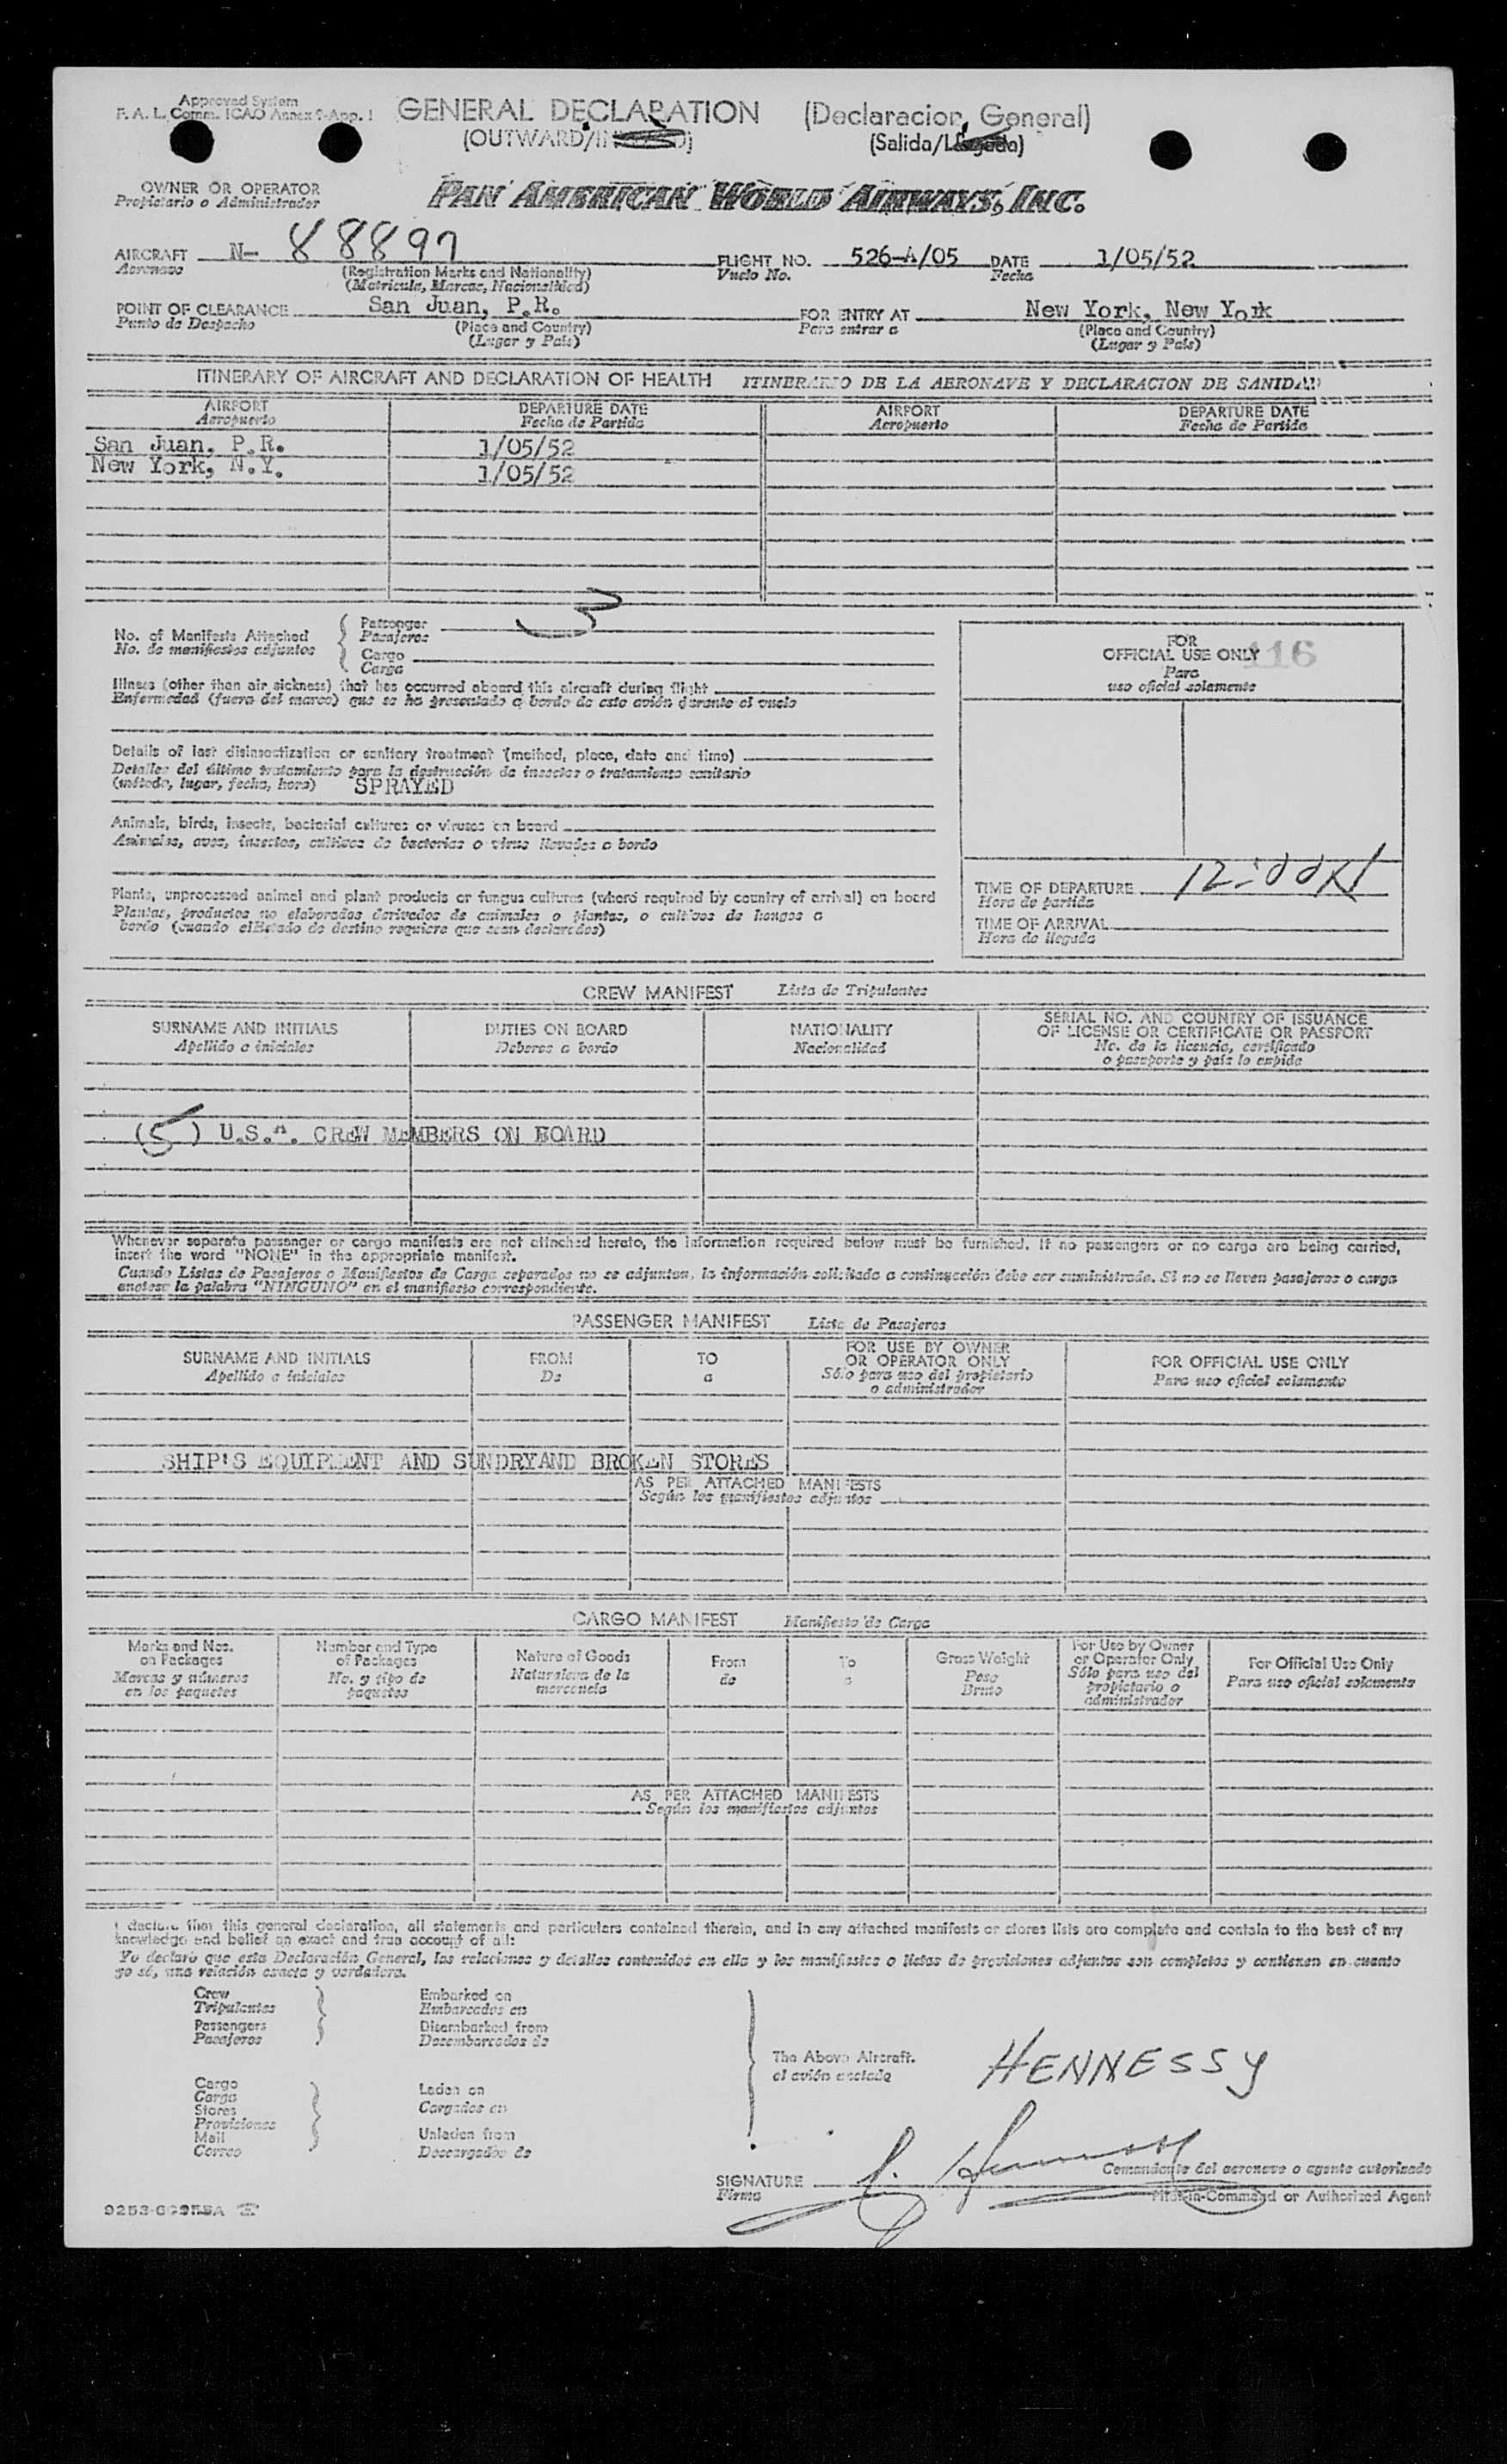 Approved System
F. A. L. Comm. ICAO Annex 9-App. 1
GENERAL DECLARATION (Declaracion General)
(OUTWARD/IN (Salida/
OWNER OR OPERATOR
Propietario o Administrador
PAN AMERICAN WORLD AIRWAYS, INC.
AIRCRAFT N- 88897 FLIGHT NO. 526-A/05 DATE 1/05/52
Aeronave (Registration Marks and Nationality) Vuelo No. Fecha
(Matricula, Marcas, Nacionalidad)
POINT OF CLEARANCE San Juan, P.R. FOR ENTRY AT New York, New York
Punto de Despacho (Place and Country) Para entrar a (Place and Country)
(Lugar y País) (Lugar y País)
ITINERARY OF AIRCRAFT AND DECLARATION OF HEALTH ITINERARIO DE LA AERONAVE Y DECLARACION DE SANIDAD
AIRPORT DEPARTURE DATE AIRPORT DEPARTURE DATE
Aeropuerto Fecha de Partida Aeropuerto Fecha de Partida
San Juan, P.R. 1/05/52
New York, N.Y. 1/05/52
No. of Manifests Attached
No. de manifiestos adjuntos
Passenger 3
Pasajeros
Cargo
Carga
Illness (other than air sickness) that has occurred aboard this aircraft during flight
Enfermedad (fuera del mareo) que se ha presentado a bordo de este avión durante el vuelo
Details of last disinsectization or sanitary treatment (method, place, date and time)
Detalles del último tratamiento para la destrucción de insectos o tratamiento sanitario
(método, lugar, fecha, hora) SPRAYED
Animals, birds, insects, bacterial cultures or viruses on board
Animales, aves, insectos, cultivos de bacterias o virus llevados a bordo
Plants, unprocessed animal and plant products or fungus cultures (where required by country of arrival) on board
Plantas, productos no elaborados derivados de animales o plantas, o cultivos de hongos a
bordo (cuando el Estado de destino requiera que sean declarados)
FOR
OFFICIAL USE ONLY 116
Para
uso oficial solamente
TIME OF DEPARTURE 12:00
Hora de partida
TIME OF ARRIVAL
Hora de llegada
CREW MANIFEST Lista de Tripulantes
SURNAME AND INITIALS DUTIES ON BOARD NATIONALITY SERIAL NO. AND COUNTRY OF ISSUANCE
OF LICENSE OR CERTIFICATE OR PASSPORT
Apellido e iniciales Deberes a bordo Nacionalidad No. de la licencia, certificado
o pasaporte y país lo expide
(5) U.S.A. CREW MEMBERS ON BOARD
Whenever separate passenger or cargo manifests are not attached hereto, the information required below must be furnished. If no passengers or no cargo are being carried,
insert the word "NONE" in the appropriate manifest.
Cuando Listas de Pasajeros o Manifiestos de Carga separados no se adjuntan, la información solicitada a continuación debe ser suministrada. Si no se lleven pasajeros o carga
anotese la palabra "NINGUNO" en el manifiesto correspondiente.
PASSENGER MANIFEST Lista de Pasajeros
SURNAME AND INITIALS FROM TO FOR USE BY OWNER
OR OPERATOR ONLY FOR OFFICIAL USE ONLY
Apellido e iniciales De a Sólo para uso del propietario
o administrador Para uso oficial solamente
SHIP'S EQUIPMENT AND SUNDRY AND BROKEN STORES
AS PER ATTACHED MANIFESTS
Según los manifiestos adjuntos
CARGO MANIFEST Manifiesto de Carga
Marks and Nos.
on Packages
Marcas y números
en los paquetes
Number and Type
of Packages
No. y tipo de
paquetes
Nature of Goods
Naturaleza de la
mercancía
From
de
To
a
Gross Weight
Peso
Bruto
For Use by Owner
or Operator Only
Sólo para uso del
propietario o
administrador
For Official Use Only
Para uso oficial solamente
AS PER ATTACHED MANIFESTS
Según los manifiestos adjuntos
I declare that this general declaration, all statements and particulars contained therein, and in any attached manifests or stores lists are complete and contain to the best of my
knowledge and belief an exact and true account of all:
Yo declaro que esta Declaración General, las relaciones y detalles contenidos en ella y los manifiestos o listas de provisiones adjuntos son completos y contienen en cuanto
yo sé, una relación exacta y verdadera.
Crew
Tripulantes
Passengers
Pasajeros
Embarked on
Embarcados en
Disembarked from
Desembarcados de
Cargo
Carga
Stores
Provisiones
Mail
Correo
Laden on
Cargados en
Unladen from
Descargados de
The Above Aircraft.
el avión anotado
HENNESSY
SIGNATURE
Firma
Comandante del aeronave o agente autorizado
Pilot-in-Command or Authorized Agent